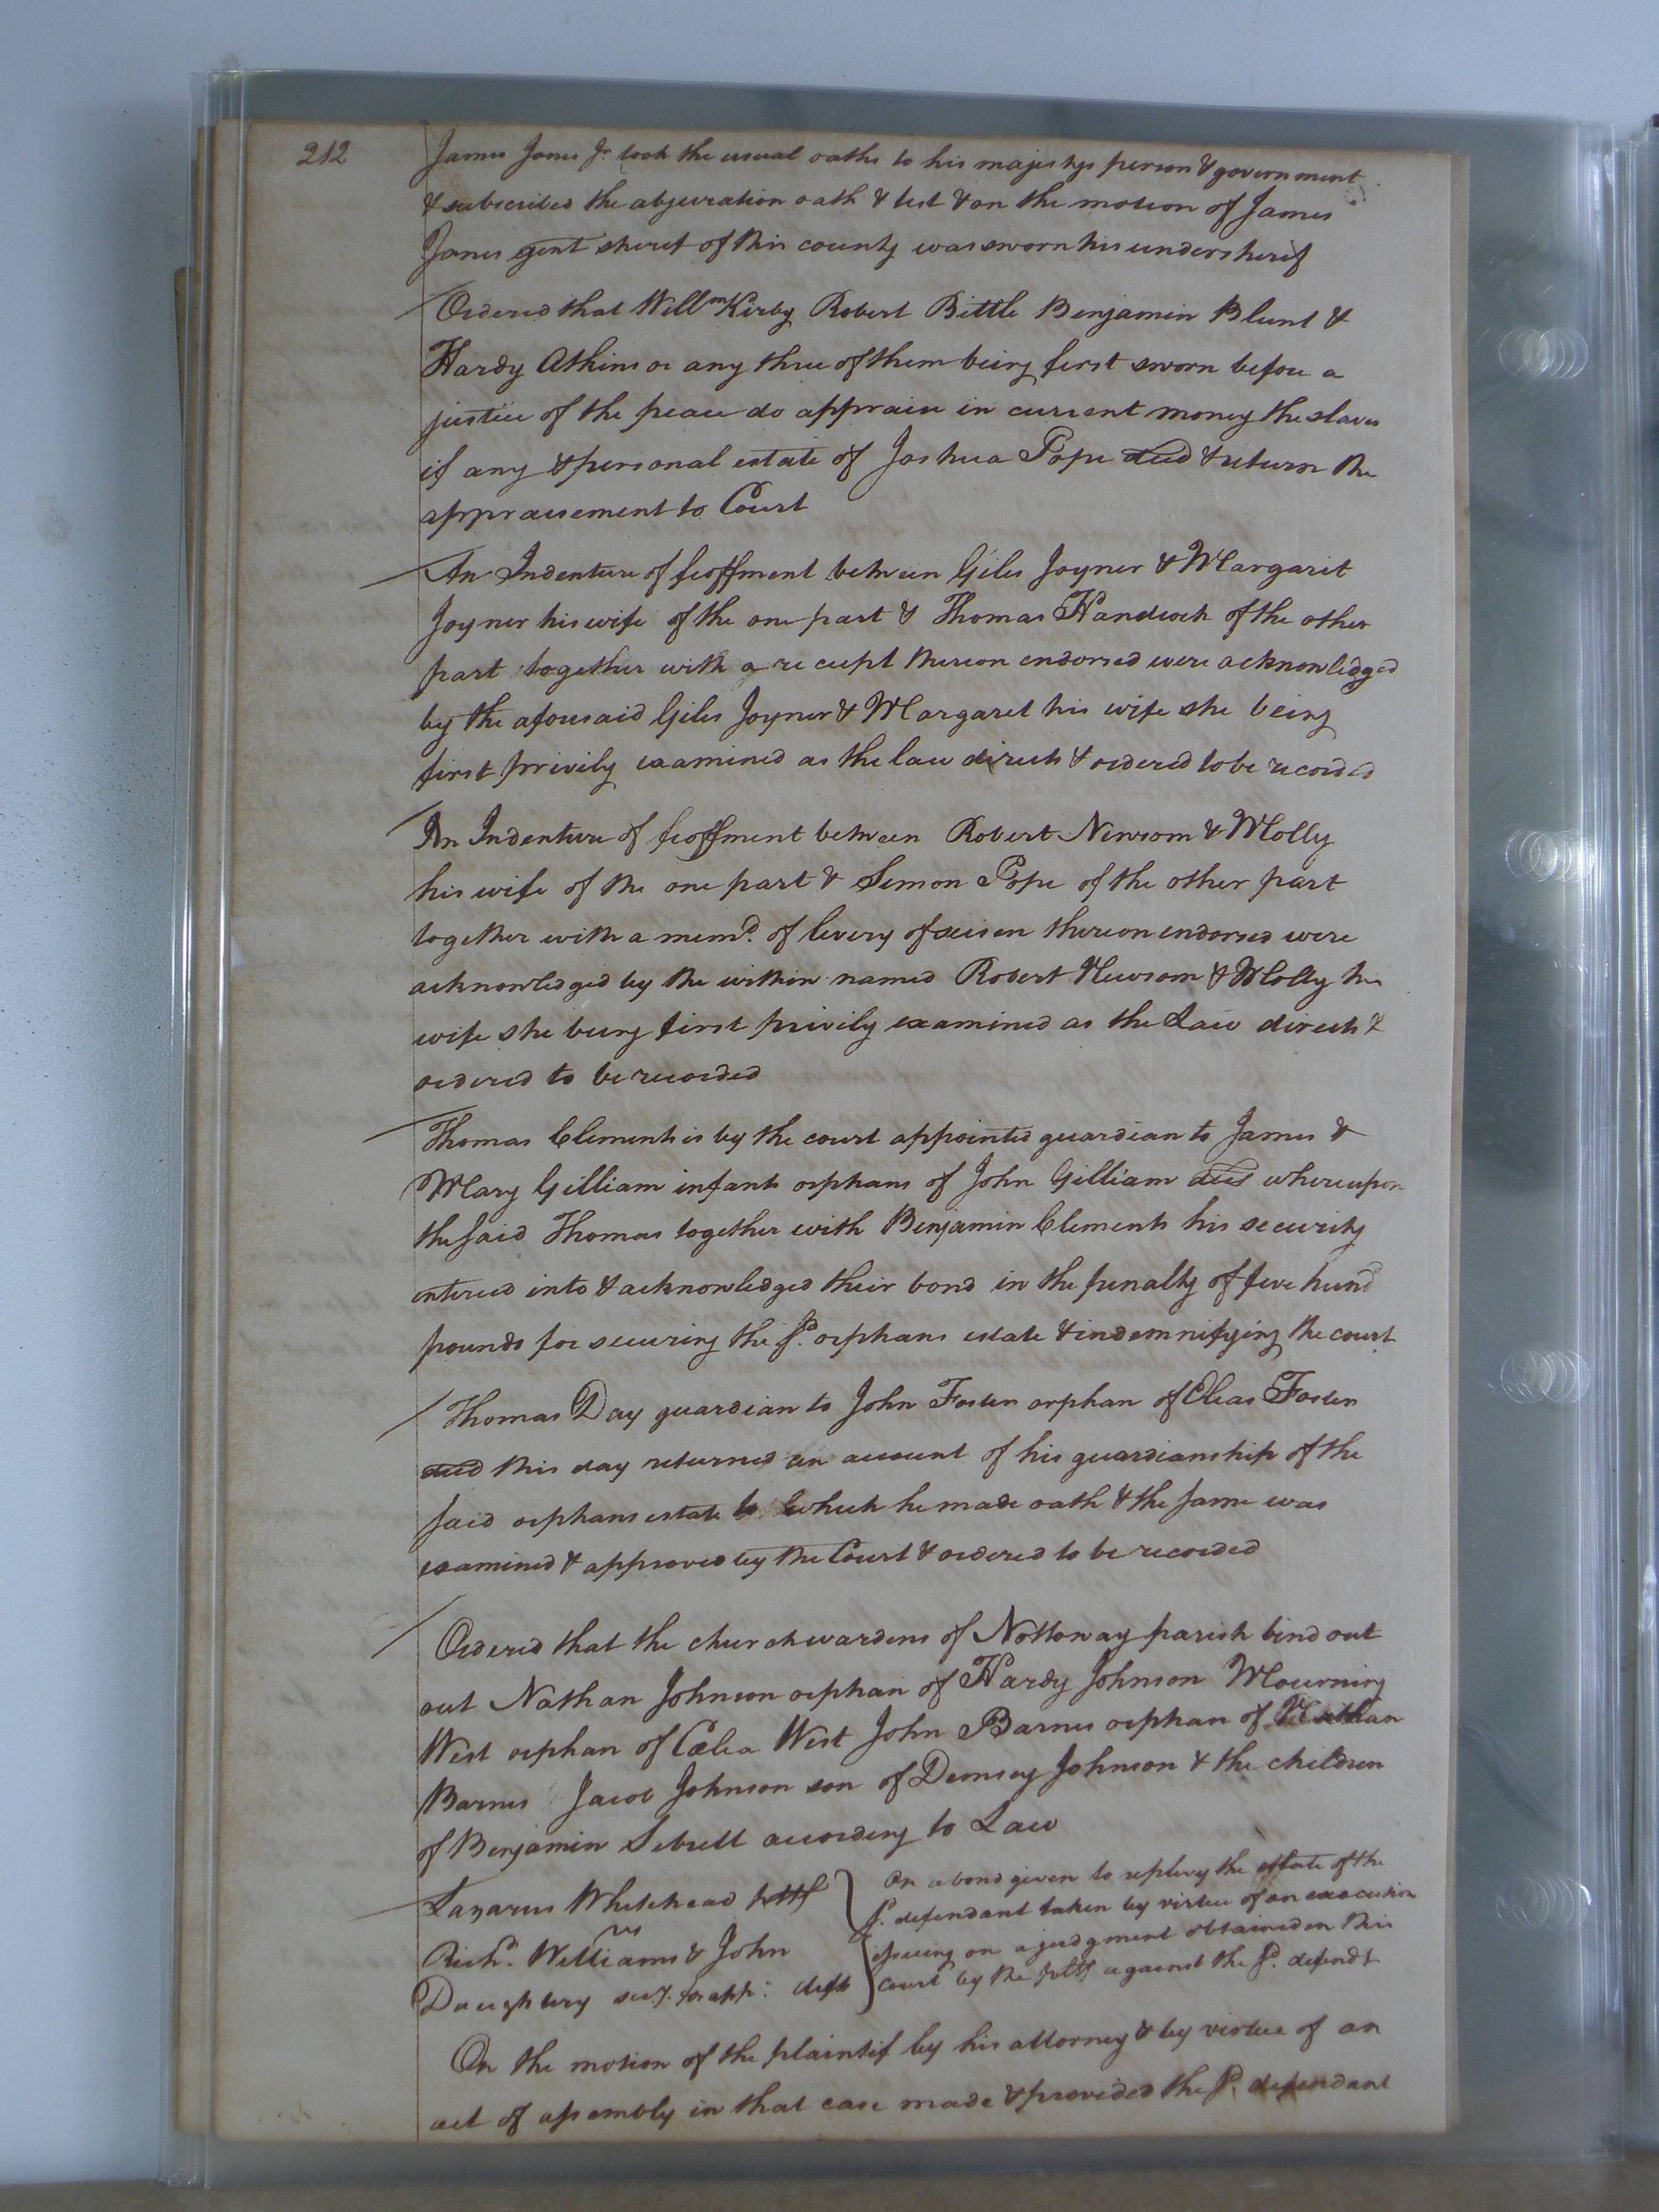 212
James Jones Jr. took the usual oaths to his majestys person & government
& subscribed the abjuration oath & test & on the motion of James
Jones gent sherif of this county was sworn his undersherif
Ordered that Willm Kirby Robert Bittle Benjamin Blunt &
Hardy Atkins or any three of them being first sworn before a
justice of the peace do appraise in current money the slaves
if any & personal estate of Joshua Pope decd & return the
appraisement to Court
An Indenture of feoffment between Giles Joyner & Margaret
Joyner his wife of the one part & Thomas Handcock of the other
part together with a receipt thereon endorsed were acknowledged
by the aforesaid Giles Joyner & Margaret his wife she being
first privily examined as the law directs & ordered to be recorded
An Indenture of feoffment between Robert Newsom & Molly
his wife of the one part & Simon Pope of the other part
together with a memd. of livery of seisen thereon endorsed were
acknowledged by the within named Robert Newsom & Molly his
wife she being first privily examined as the Law directs &
ordered to be recorded
Thomas Clements is by the court appointed guardian to James &
Mary Gilliam infant orphans of John Gilliam decd whereupon
the said Thomas together with Benjamin Clements his security
entered into & acknowledged their bond in the penalty of five hund
pounds for securing the sd. orphans estate & indemnifying the court
Thomas Day guardian to John Foster orphan of Elias Foster
decd this day returned an account of his guardianship of the
said orphans estate to which he made oath & the same was
examined & approved by the Court & ordered to be recorded
Ordered that the churchwardens of Nottoway parish bind out
out Nathan Johnson orphan of Hardy Johnson Mourning
West orphan of Celia West John Barnes orphan of Nathan
Barnes Jacob Johnson son of Demsey Johnson & the children
of Benjamin Sebrell according to Law
Lazarus Whitehead pltf
vs
Richd. Williams & John
Daughtry defts
On a bond given to replevy the estate of the
sd. defendant taken by virtue of an execution
issuing on a judgment obtained in this
court by the pltf against the sd. defendt
On the motion of the plaintif by his attorney & by virtue of an
act of assembly in that case made & provided the sd. defendant